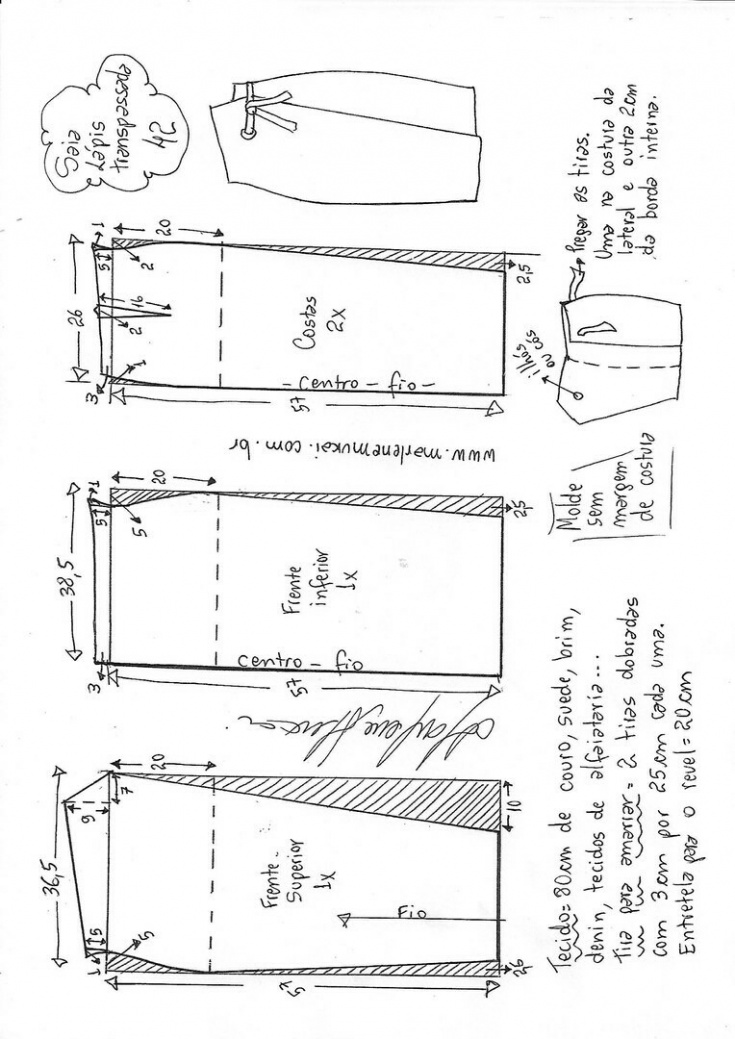 Saia
Lápis
transpassada
42
36,5
9
7
20
5
1
5
Frente
Superior
1x
Fio
57
26
10
38,5
3
5
1
20
5
Frente
inferior
1x
centro - fio
57
2,5
26
3
1
2
16
5
1
2
20
Costas
2x
- centro - fio -
57
2,5
www.marlenemukai.com.br
Tecido = 80cm de couro, suede, brim,
denin, tecidos de alfaiataria...
Tira para amarrar = 2 tiras dobradas
com 3cm por 25cm cada uma.
Entretela para o revel = 20cm
Molde
sem
margem
de costura
ilhós
ou cós
Pregar as tiras.
Uma na costura da
lateral e outra 2cm
da borda interna.